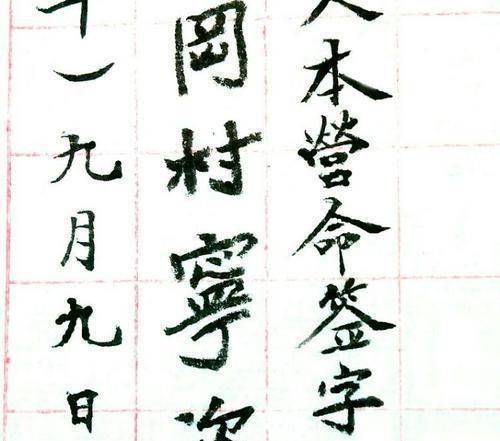 本營命簽字
岡村寧次
十一九月九日